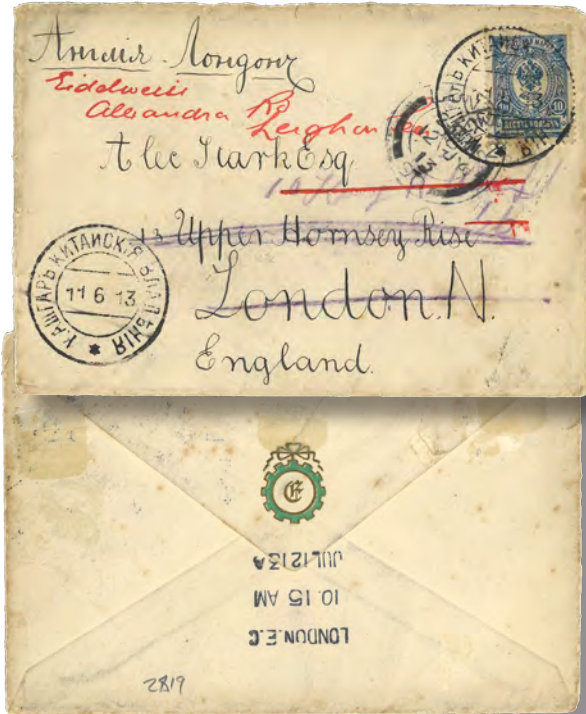 Англия Лондонъ
Eidelweiss
Alexandra Rd
Leigh on Sea
Alec Stark Esq
13 Upper Hornsey Rise
London. N.
England.
КАШГАРЪ КИТАЙСКІЯ ВЛАДѢНІЯ
11 6 13
КИТАЙСК
10 10
ДЕСЯТЬ КОПѢЕКЪ
E
LONDON.E.C
10.15 AM
JUL 12 13A
2819